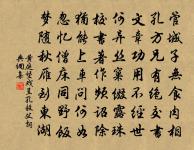 管城子無食肉相
孔方兄有絕交書
文章功用不經世
何异丝窠綴露珠
校書著作頻詔除
猶能上車問何如
忽憶僧床同野飯
夢隨秋雁到東湖
黄庭堅戏呈孔毅父詞
典網集